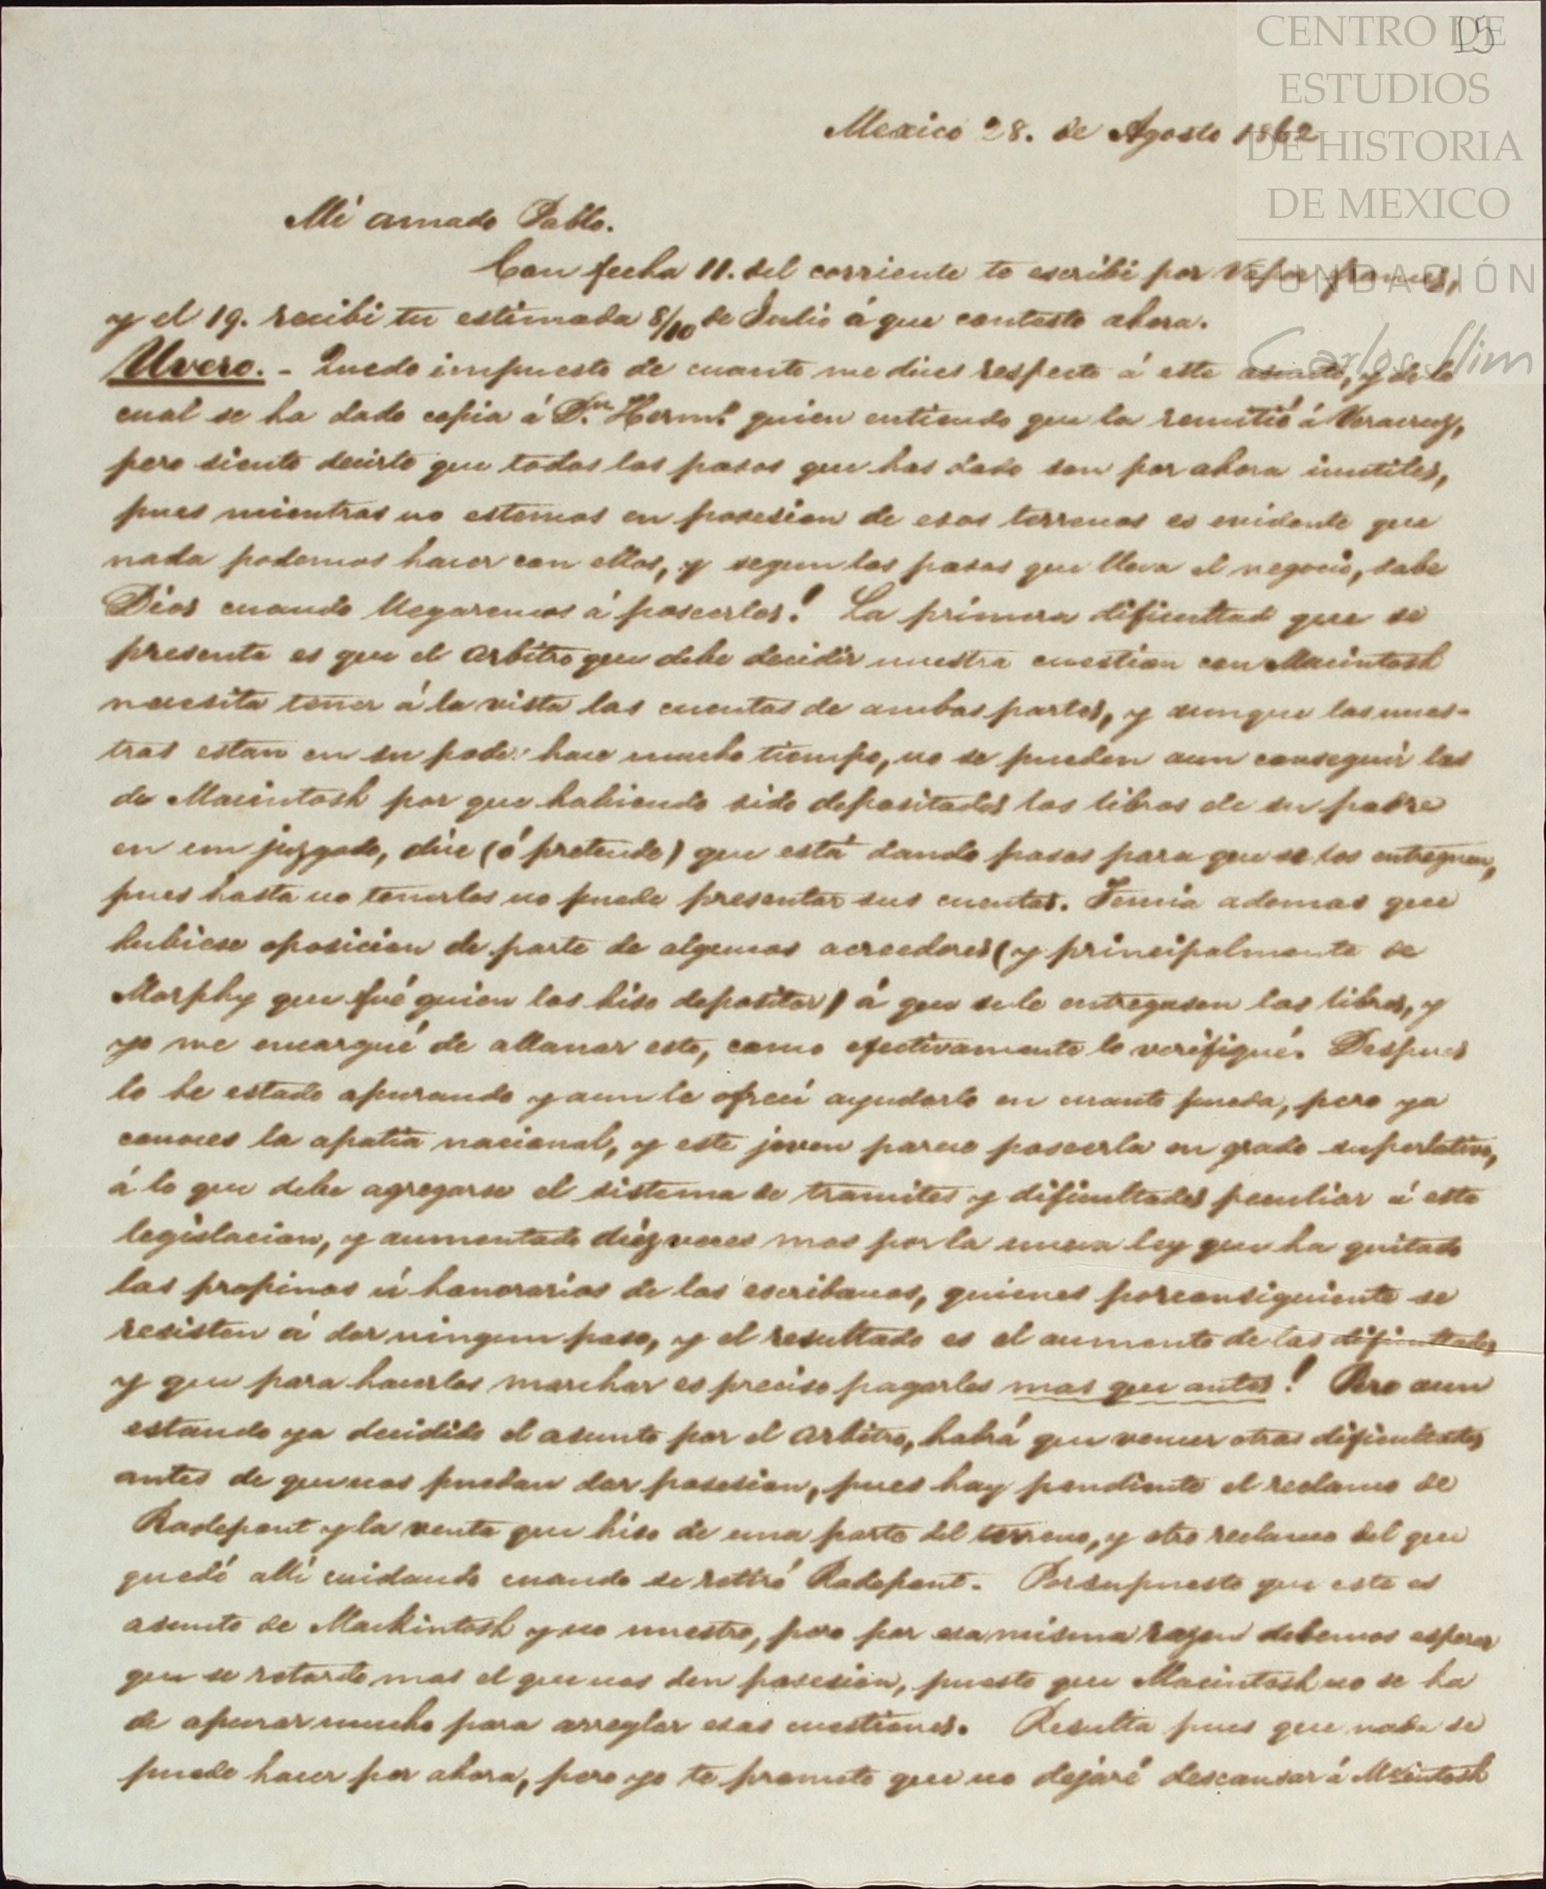 15
CENTRO DE
ESTUDIOS
DE HISTORIA
DE MEXICO
FUNDACIÓN
Carlos Slim
Mexico 28. de Agosto 1862
Mi amado Pablo.
Con fecha 11. del corriente te escribi por Vapor frances,
y el 19. recibi tu estimada 8/10 de Julio á que contesto ahora.
Uvero. - Quedo impuesto de cuanto me dices respecto á este asunto, y de lo
cual se ha dado copia á Dn. Herml. quien entiendo que la remitió á Veracruz,
pero siento decirte que todos los pasos que has dado son por ahora inutiles,
pues mientras no estemos en posesion de esos terrenos es evidente que
nada podemos hacer con ellos, y segun los pasos que lleva el negocio, sabe
Dios cuando llegaremos á poseerlos! La primera dificultad que se
presenta es que el arbitro que debe decidir nuestra cuestion con Macintosh
necesita tener á la vista las cuentas de ambas partes, y aunque las nues-
tras estan en su poder hace mucho tiempo, no se pueden aun conseguir las
de Macintosh por que habiendo sido depositados los libros de su padre
en un juzgado, dice (ó pretende) que está dando pasos para que se los entreguen,
pues hasta no tenerlos no puede presentar sus cuentas. Temia ademas que
hubiese oposicion de parte de algunos acreedores (y principalmente de
Morphy que fué quien los hiso depositar) á que se le entregasen los libros, y
yo me encargué de allanar esto, como efectivamente lo verifiqué. Despues
lo he estado apurando y aun le ofrecí ayudarlo en cuanto pueda, pero ya
conoces la apatia nacional, y este joven parece poseerla en grado superlativo,
á lo que debe agregarse el sistema de tramites y dificultades peculiar á esta
legislacion, y aumentado diez veces mas por la nueva ley que ha quitado
las propinas ú honorarios de los escribanos, quienes porconsiguiente se
resisten á dar ningun paso, y el resultado es el aumento de las dificultades
y que para hacerlos marchar es preciso pagarles mas que antes! Pero aun
estando ya decidido el asunto por el arbitro, habrá que vencer otras dificultades
antes de que nos puedan dar posesion, pues hay pendiente el reclamo de
Radepont y la venta que hiso de una parte del terreno, y otro reclamo del que
quedó alli cuidando cuando se retiró Radepont. Por supuesto que este es
asunto de Mackintosh y no nuestro, pero por esa misma razon debemos esperar
que se retarde mas el que nos den posesion, puesto que Macintosh no se ha
de apurar mucho para arreglar esas cuestiones. Resulta pues que nada se
puede hacer por ahora, pero yo te prometo que no dejaré descansar á Mcintosh